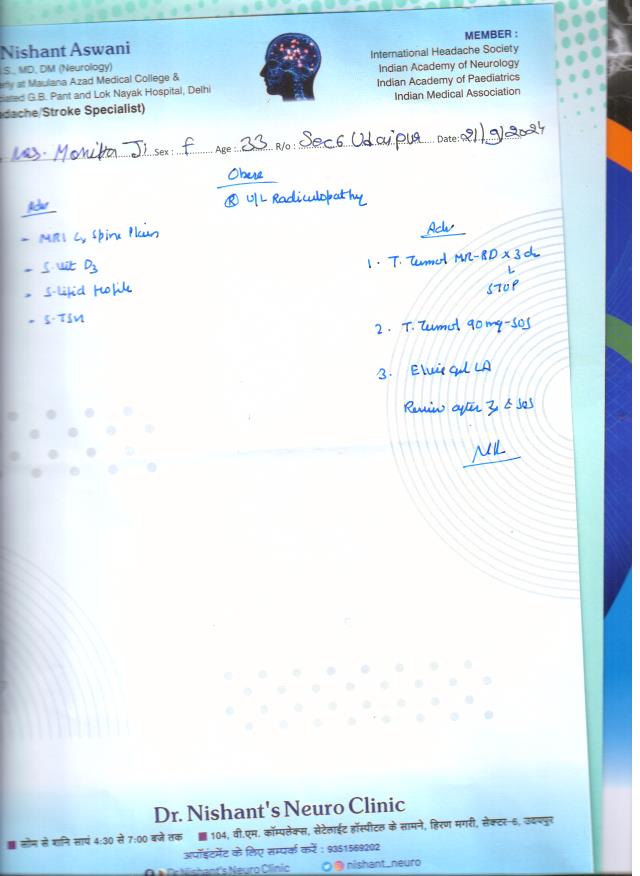 Nishant Aswani
.S., MD, DM (Neurology)
erly at Maulana Azad Medical College &
ciated G.B. Pant and Lok Nayak Hospital, Delhi
adache/Stroke Specialist)
MEMBER :
International Headache Society
Indian Academy of Neurology
Indian Academy of Paediatrics
Indian Medical Association
Mrs. Monika Ji Sex : f Age : 33 R/o : Sec 6 Udaipur Date: 21/9/2024
Obese
Ⓡ U/L Radiculopathy
Adv
- MRI C spine Plain
- S. Vit D3
- S. lipid profile
- S. TSH
Adv
1. T. MR-BD x 3 d
↓
STOP
2. T. 90 mg - SOS
3. gel LA
Review after SOS
Dr. Nishant's Neuro Clinic
सोम से शनि सायं 4:30 से 7:00 बजे तक 104, वी.एम. कॉम्पलेक्स, सेटेलाईट हॉस्पीटल के सामने, हिरण मगरी, सेक्टर-6, उदयपुर
अपॉइंटमेंट के लिए सम्पर्क करें : 9351569202
Dr Nishant's Neuro Clinic nishant_neuro